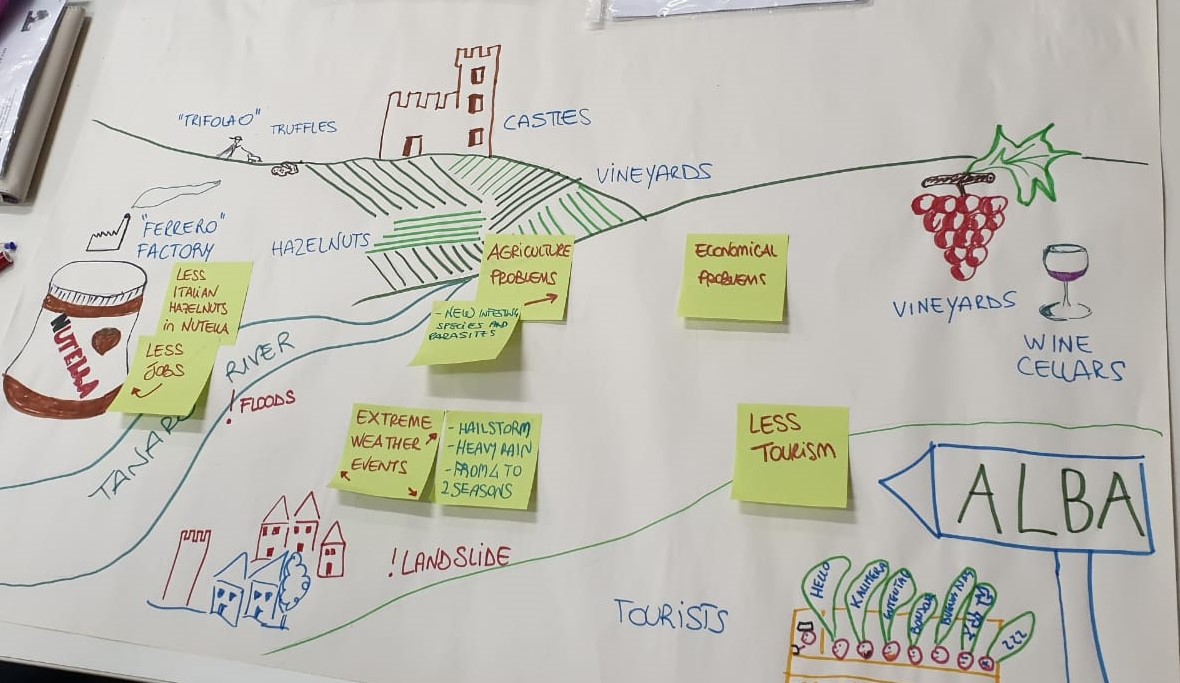 "TRIFOLAO"
TRUFFLES
CASTLES
VINEYARDS
"FERRERO"
FACTORY
HAZELNUTS
AGRICULTURE
PROBLEMS
ECONOMICAL
PROBLEMS
LESS
ITALIAN
HAZELNUTS
in NUTELLA
- NEW INFESTING
SPECIES AND
PARASITES
VINEYARDS
WINE
CELLARS
NUTELLA
LESS
JOBS
TANARO RIVER
! FLOODS
EXTREME
WEATHER
EVENTS
- HAILSTORM
- HEAVY RAIN
- FROM 4 TO
2 SEASONS
LESS
TOURISM
ALBA
! LANDSLIDE
TOURISTS
HELLO
KALIMERA
BONJOUR
BUENAS
ZZZ